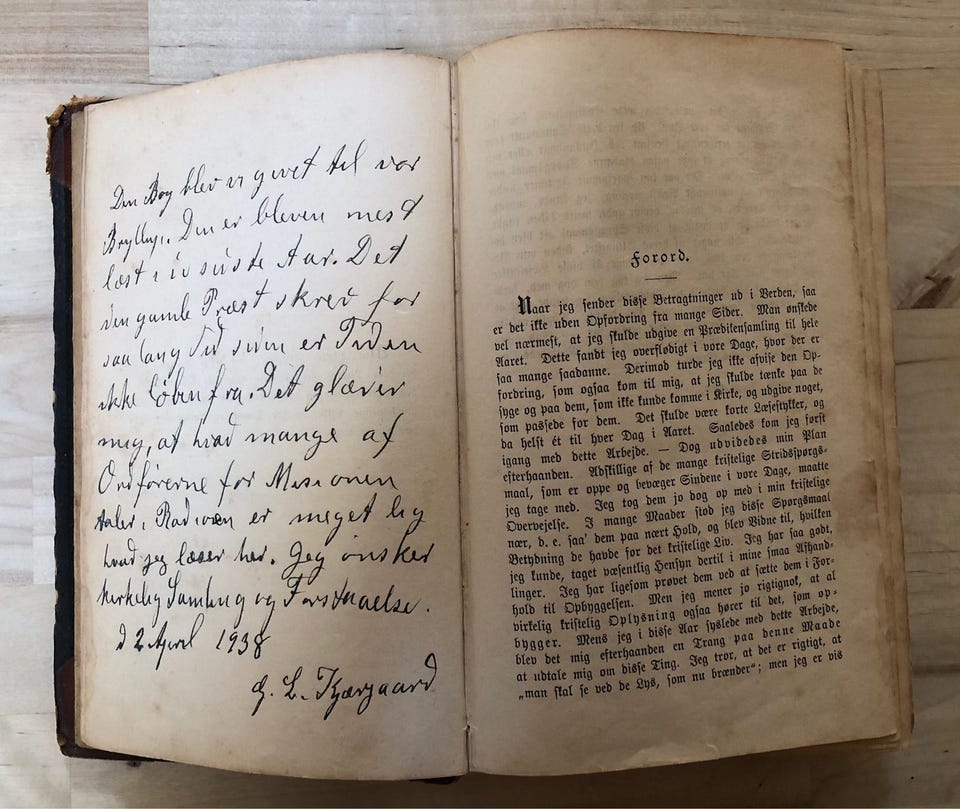 Den Bog blev vi givet til vor
Bryllup. Den er bleven mest
læst i de sidste Aar. Det
den gamle Præst skrev for
saa lang Tid siden er Tiden
ikke løben fra. Det glæder
mig, at hvad mange af
Ordførerne for Missionen
taler i Radioen er meget lig
hvad jeg læser her. Jeg ønsker
kirkelig Samling og Forstaaelse.
d 2 April 1938
L. Kjærgaard
Forord.
Naar jeg sender disse Betragtninger ud i Verden, saa
er det ikke uden Opfordring fra mange Sider. Man ønskede
vel nærmest, at jeg skulde udgive en Prædikensamling til hele
Aaret. Dette fandt jeg overflødigt i vore Dage, hvor der er
saa mange saadanne. Derimod turde jeg ikke afvise den Op-
fordring, som ogsaa kom til mig, at jeg skulde tænke paa de
syge og paa dem, som ikke kunde komme i Kirke, og udgive noget,
som passede for dem. Det skulde være korte Læsestykker, og
da helst ét til hver Dag i Aaret. Saaledes kom jeg først
igang med dette Arbejde. — Dog udvidedes min Plan
efterhaanden. Adskillige af de mange kristelige Stridsspørgs-
maal, som er oppe og bevæger Sindene i vore Dage, maatte
jeg tage med. Jeg tog dem jo dog op med i min kristelige
Overvejelse. I mange Maader stod jeg disse Spørgsmaal
nær, d. e. saa' dem paa nært Hold, og blev Vidne til, hvilken
Betydning de havde for det kristelige Liv. Jeg har saa godt,
jeg kunde, taget væsentlig Hensyn dertil i mine smaa Afhand-
linger. Jeg har ligesom prøvet dem ved at sætte dem i For-
hold til Opbyggelsen. Men jeg mener jo rigtignot, at al
virkelig kristelig Oplysning ogsaa hører til det, som op-
bygger. Mens jeg i disse Aar syslede med dette Arbejde,
blev det mig efterhaanden en Trang paa denne Maade
at udtale mig om disse Ting. Jeg tror, at det er rigtigt, at
„man skal se ved de Lys, som nu brænder“; men jeg er vis